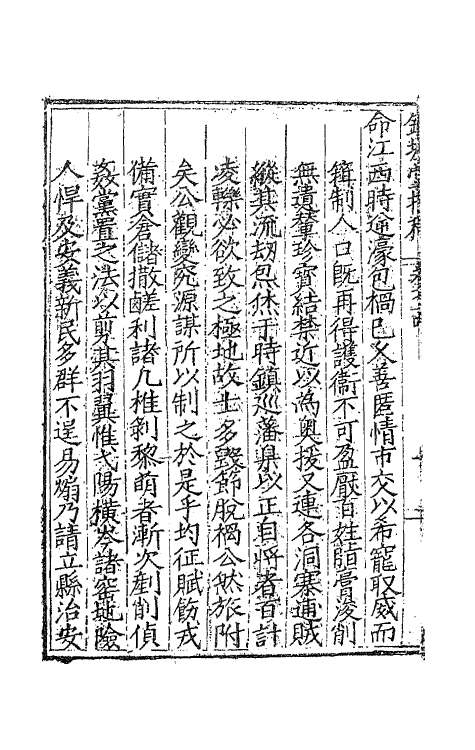 命江西時逆濠包禍已久善匿情市交以希寵取威而
鎋制人口既再得護衞不可盈厭百姓脂膏浚削
無遺輦珍寳結禁近以為奥援又連各洞寨逋賊
縱其流刼炰烋于時鎮廵藩臬以正自將者百計
凌轢必欲致之極地故士多毁節脫禍公然旅附
矣公觀變究源謀所以制之於是乎均征賦飭戎
備實倉儲撤鹺利諸凡椎剥黎萌者漸次剗削偵
姦黨置之法以剪其羽翼惟弋陽橫峯諸窑地險
人悍及安義新民多群不逞易煽乃請立縣治安